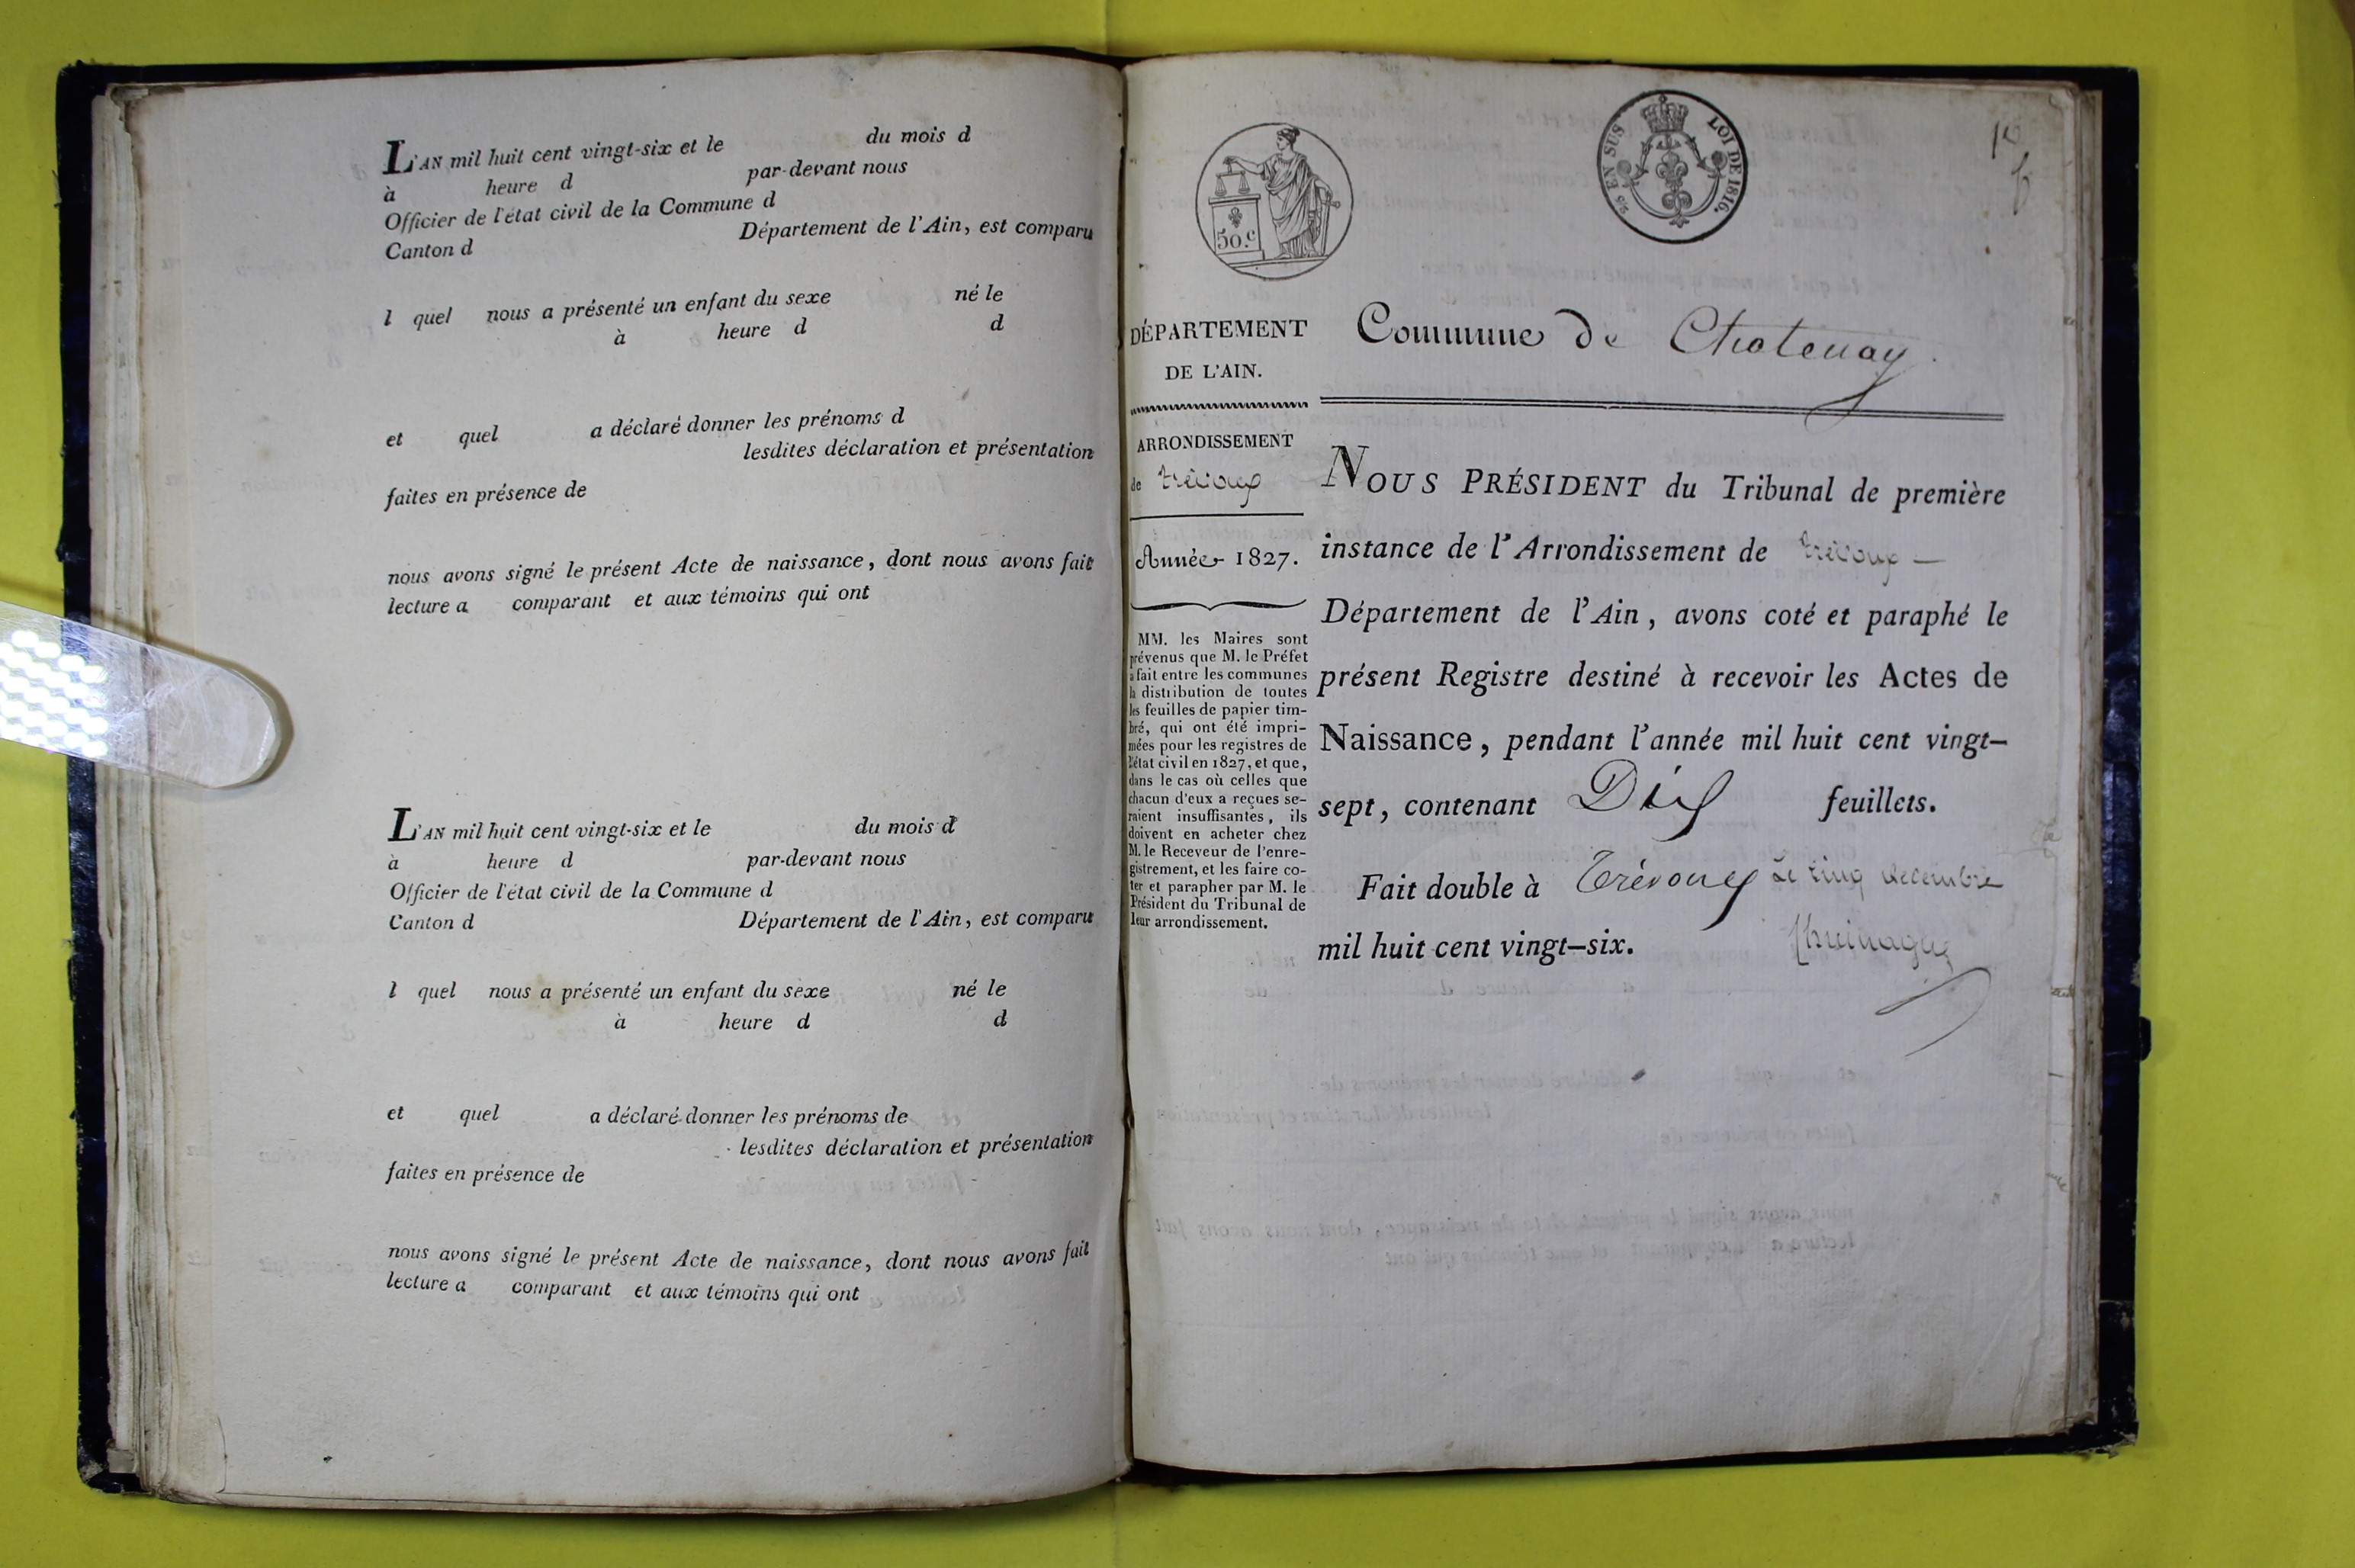 L'AN mil huit cent vingt-six et le du mois d
à heure d par-devant nous
Officier de l'état civil de la Commune d
Canton d Département de l'Ain, est comparu
l quel nous a présenté un enfant du sexe né le
à heure d d
et quel a déclaré donner les prénoms d
lesdites déclaration et présentation
faites en présence de
nous avons signé le présent Acte de naissance, dont nous avons fait
lecture a comparant et aux témoins qui ont
L'AN mil huit cent vingt-six et le du mois d
à heure d par-devant nous
Officier de l'état civil de la Commune d
Canton d Département de l'Ain, est comparu
l quel nous a présenté un enfant du sexe né le
à heure d d
et quel a déclaré donner les prénoms de
lesdites déclaration et présentation
faites en présence de
nous avons signé le présent Acte de naissance, dont nous avons fait
lecture a comparant et aux témoins qui ont
50.c
EN SUS LOI DE 1816.
DÉPARTEMENT
DE L'AIN.
ARRONDISSEMENT
de trévoux
Année 1827.
MM. les Maires sont
prévenus que M. le Préfet
a fait entre les communes
la distribution de toutes
les feuilles de papier tim-
bré, qui ont été impri-
mées pour les registres de
l'état civil en 1827, et que,
dans le cas où celles que
chacun d'eux a reçues se-
raient insuffisantes, ils
doivent en acheter chez
M. le Receveur de l'enre-
gistrement, et les faire co-
ter et parapher par M. le
Président du Tribunal de
leur arrondissement.
Commune de Chatenay
NOUS PRÉSIDENT du Tribunal de première
instance de l'Arrondissement de trévoux
Département de l'Ain, avons coté et paraphé le
présent Registre destiné à recevoir les Actes de
Naissance, pendant l'année mil huit cent vingt-
sept, contenant Dix feuillets.
Fait double à Trévoux Le cinq decembre
mil huit cent vingt-six.